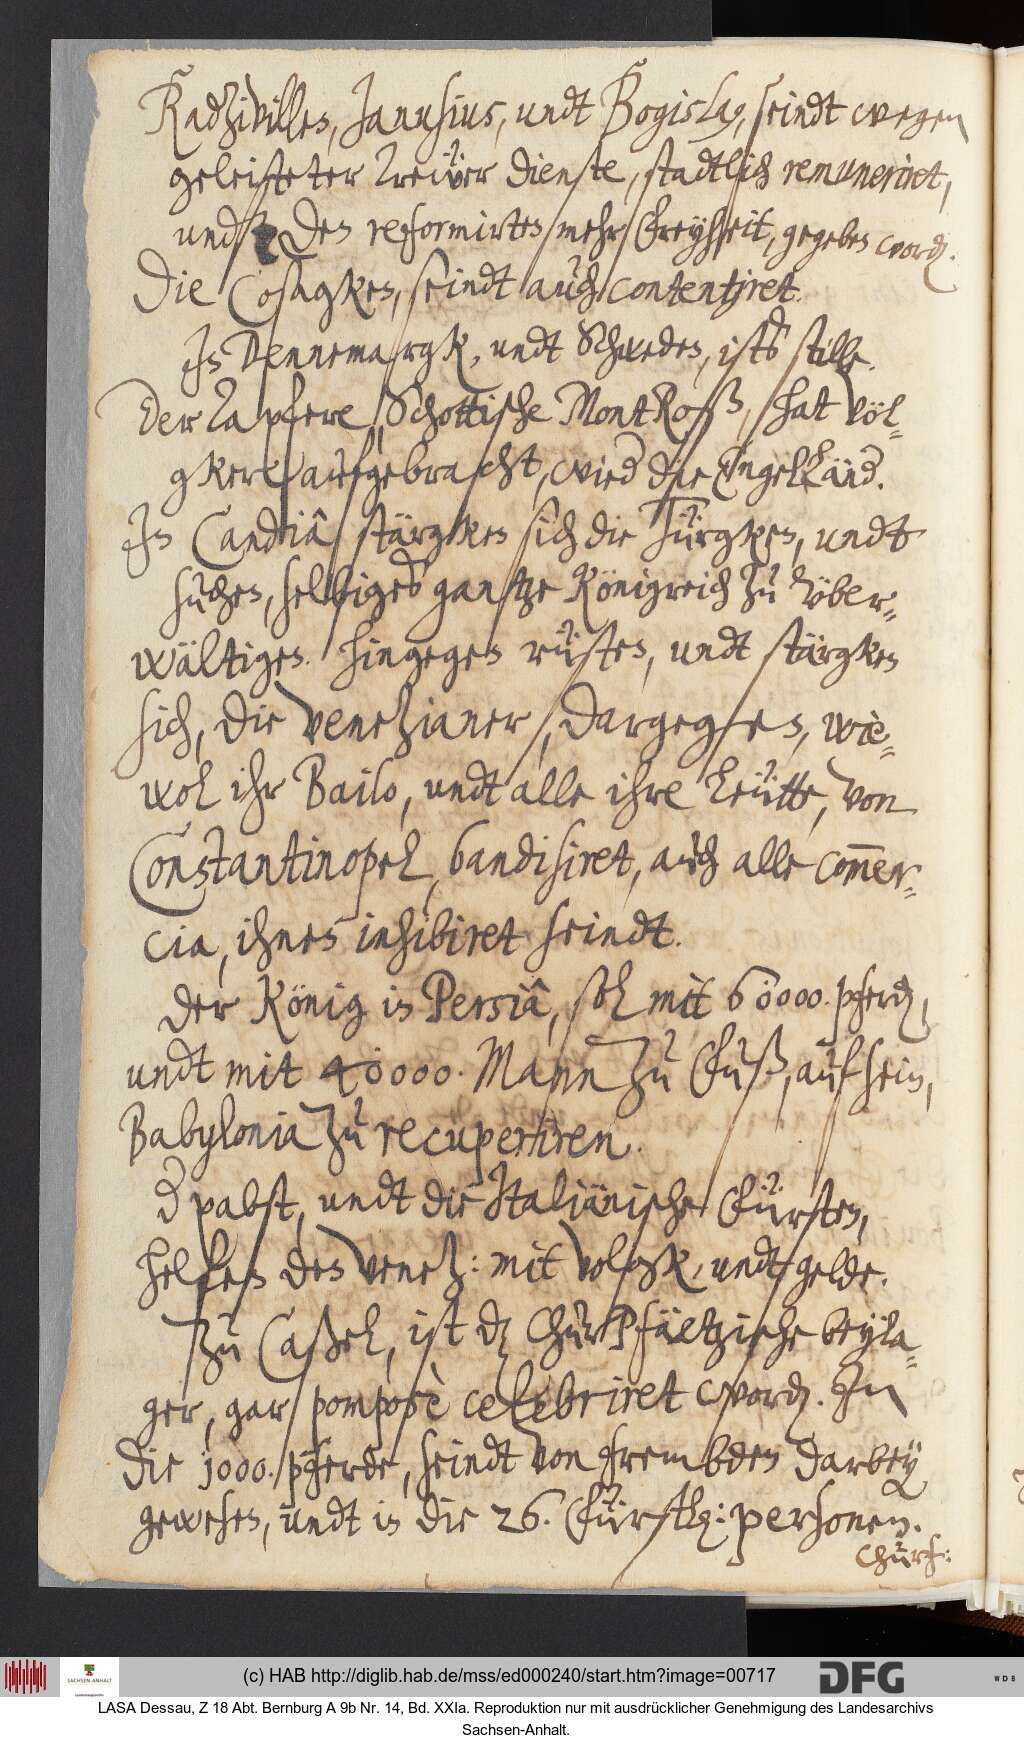 Radzivilles, Janusius, undt Bogislaq, seindt wegen
geleisteter treüer dienste, stadtlich remuneriret,
undt den reformirten mehr freyheit, gegeben word.
Die Cosagken, seindt auch contentiret.
In Dennemargk, undt Schweden, ists stille.
Der tapfere, Schottische MontRoß, hat völ-
gker aufgebracht, wied die EngelLänd.
In Candiâ stärgken sich die Türgken, undt
suchen, selbiges gantze Königreich zu über-
wältigen. Hingegen rüsten, undt stärgken
sich, die Venezianer, dargegen, wie-
wol ihr Bailo, undt alle ihre Leütte, von
Constantinopel, bandisiret, auch alle com̅er-
cia, ihnen inhibiret seindt.
Der König in Persiâ, sol mit 60000. pferd,
undt mit 40000. Mann zu Fuß, auf sein,
Babylonia zu recuperiren.
D pabst, undt die Italiänische Fürsten,
helfen den Venez: mit volgk, undt gelde.
Zu Caßel, ist d ChurPfältzische beyla-
ger, gar pomposè celebriret word. In
die 1000. pferde, seindt von frembden darbey
gewesen, undt in die 26. Fürstl: personen.
Churf:
(c) HAB http://diglib.hab.de/mss/ed000240/start.htm?image=00717
DFG
WDB
SACHSEN-ANHALT
LASA Dessau, Z 18 Abt. Bernburg A 9b Nr. 14, Bd. XXIa. Reproduktion nur mit ausdrücklicher Genehmigung des Landesarchivs
Sachsen-Anhalt.